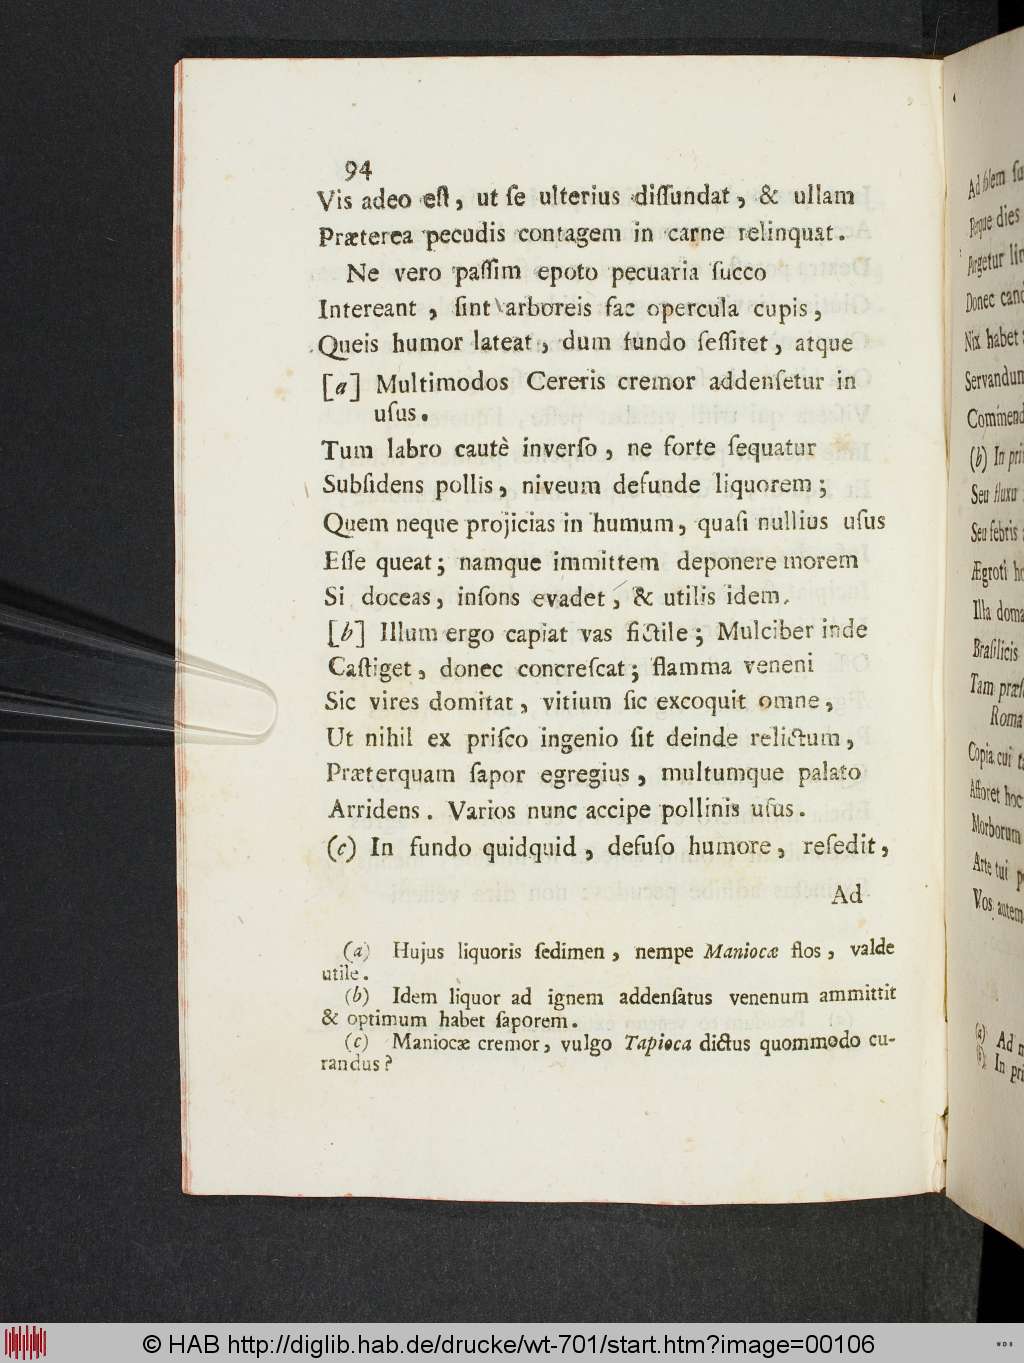 94
Vis adeo eſt, ut ſe ulterius diſſundat, & ullam
Præterea pecudis contagem in carne relinquat.
Ne vero paſſim epoto pecuaria ſucco
Intereant, ſint arboreis fac opercula cupis,
Queis humor lateat, dum fundo ſeſſitet, atque
[a] Multimodos Cereris cremor addenſetur in
uſus.
Tum labro cautè inverſo, ne forte ſequatur
Subſidens pollis, niveum defunde liquorem;
Quem neque projicias in humum, quaſi nullius uſus
Eſſe queat; namque immittem deponere morem
Si doceas, inſons evadet, & utilis idem.
[b] Illum ergo capiat vas fictile; Mulciber inde
Caſtiget, donec concreſcat; flamma veneni
Sic vires domitat, vitium ſic excoquit omne,
Ut nihil ex priſco ingenio ſit deinde relictum,
Præterquam ſapor egregius, multumque palato
Arridens. Varios nunc accipe pollinis uſus.
(c) In fundo quidquid, defuſo humore, reſedit,
Ad
(a) Hujus liquoris ſedimen, nempe Maniocæ flos, valde
utile.
(b) Idem liquor ad ignem addenſatus venenum ammittit
& optimum habet ſaporem.
(c) Maniocæ cremor, vulgo Tapioca dictus quommodo cu-
randus?
Perque dies
Donec
Nix habet
(b) In
Seu fluxu
Seu febris
Ægroti
Illa
Braſilicis
Tam
Copia cui
Afforet hoc
Morborum
Arte tui
Vos autem
Ad
In
© HAB http://diglib.hab.de/drucke/wt-701/start.htm?image=00106